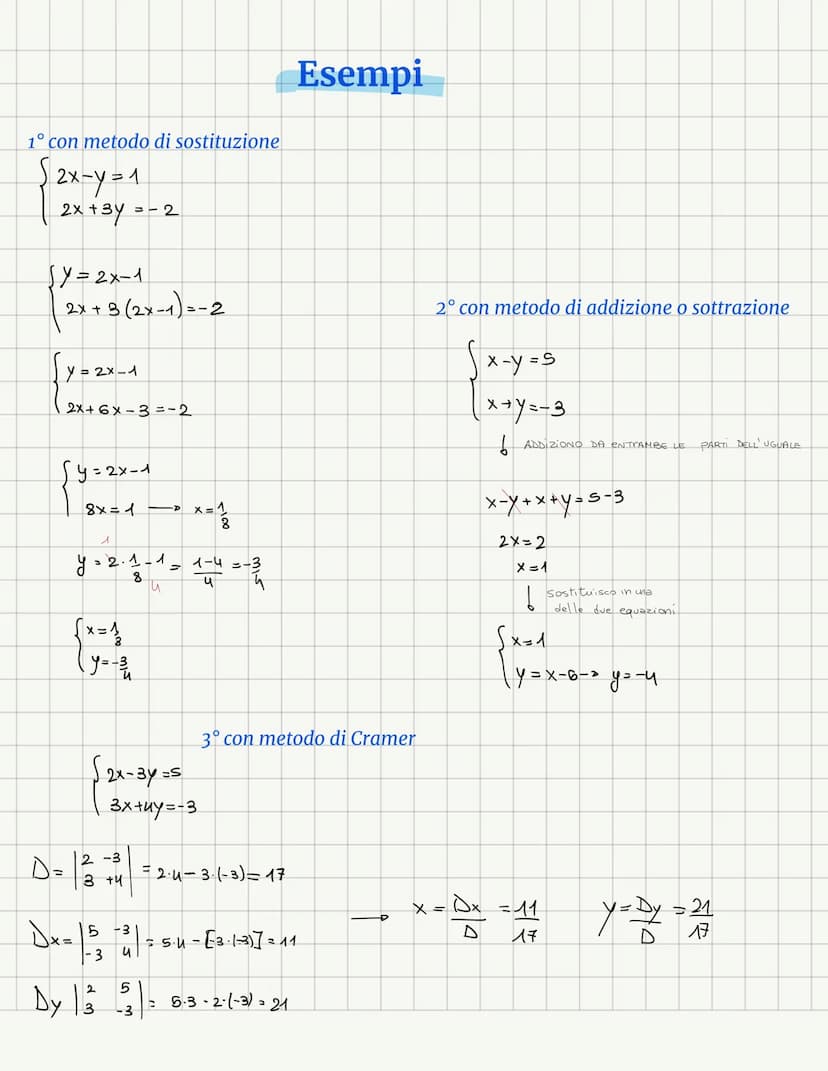 Esempi
1° con metodo di sostituzione
2x-y=1
2x+3y=-2
y=2x-1
2x+3(2x-1)=-2
y=2x-1
2x+6x-3=-2
y=2x-1
8x=1 → x=1/8
y=2·1/8-1=1-4/4=-3/4
1
4
x=1/8
y=-3/4
2° con metodo di addizione o sottrazione
x-y=5
x+y=-3
↓ ADDIZIONO DA ENTRAMBE LE PARTI DELL'UGUALE
x-y+x+y=5-3
2x=2
x=1
↓ sostituisco in una
delle due equazioni
x=1
y=x-5→ y=-4
3° con metodo di Cramer
2x-3y=5
3x+4y=-3
D=|2 -3|
|3 +4| =2·4-3·(-3)=17
Dx=|5 -3|
|-3 4| =5·4-[-3·(-3)]=11
→ x=Dx/D=11/17 y=Dy/D=21/17
Dy |2 5|
|3 -3| = 5·3-2·(-3)=21